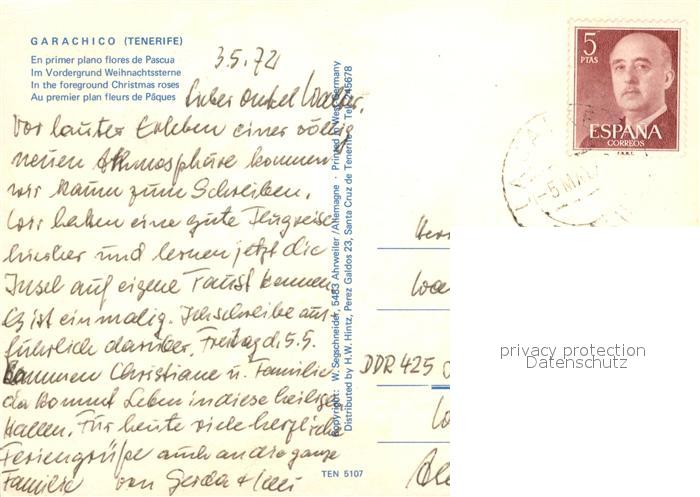 GARACHICO (TENERIFE)
En primer plano flores de Pascua
Im Vordergrund Weihnachtssterne
In the foreground Christmas roses
Au premier plan fleurs de Pâques
3.5.72
Lieber Onkel Walter,
Vor lauter Erleben einer völlig
neuen Athmosphäre kommen
wir kaum zum Schreiben.
Wir haben eine gute Flugreise
hierher und lernen jetzt die
Insel auf eigene Faust kennen
Es ist einmalig. Ich schreibe aus-
führlich darüber. Freitag d. 5.5.
kommen Christiane u. Familie
da kommt Leben in diese heiligen
Hallen. Für heute viele herzliche
Feriengrüße auch an die ganze
Familie von Gerda +
Copyright: W. Segschneider, 5483 Ahrweiler/Allemagne - Printed in West Germany
Distributed by H.W. Hintz, Perez Galdos 23, Santa Cruz de Tenerife - Tel. 245678
TEN 5107
5
PTAS
ESPAÑA
CORREOS
F.N.M.T.
-5 MAY
Herr
DDR 425
privacy protection
Datenschutz